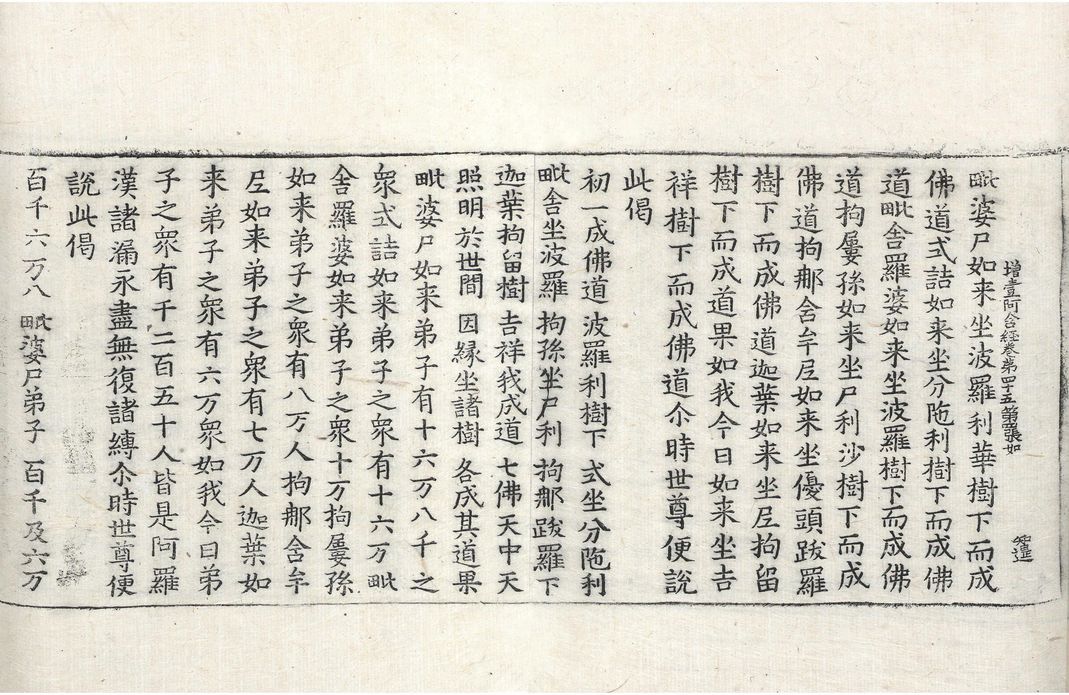 增壹阿含経卷第四十五 張 如
毗婆尸如来坐波羅利華樹下而成
佛道式詰如来坐分陁利樹下而成佛
道毗舍羅婆如来坐波羅樹下而成佛
道拘屢孫如来坐尸利沙樹下而成
佛道拘那舍牟尼如来坐優頭跋羅
樹下而成佛道迦葉如来坐尼拘留
樹下而成道果如我今日如来坐吉
祥樹下而成佛道尒時世尊便說
此偈
初一成佛道 波羅利樹下 式坐分陁利
毗舍坐波羅 拘孫坐尸利 拘那跋羅下
迦葉拘留樹 吉祥我成道 七佛天中天
照明於世間 因緣坐諸樹 各成其道果
毗婆尸如来弟子有十六万八千之
衆式詰如来弟子之衆有十六万毗
舍羅婆如来弟子之衆十万拘屢孫
如来弟子之衆有八万人拘那舍牟
尼如来弟子之衆有七万人迦葉如
来弟子之衆有六万衆如我今日弟
子之衆有千二百五十人皆是阿羅
漢諸漏永盡無復諸縛尒時世尊便
說此偈
百千六万八 毗婆尸弟子 百千及六万